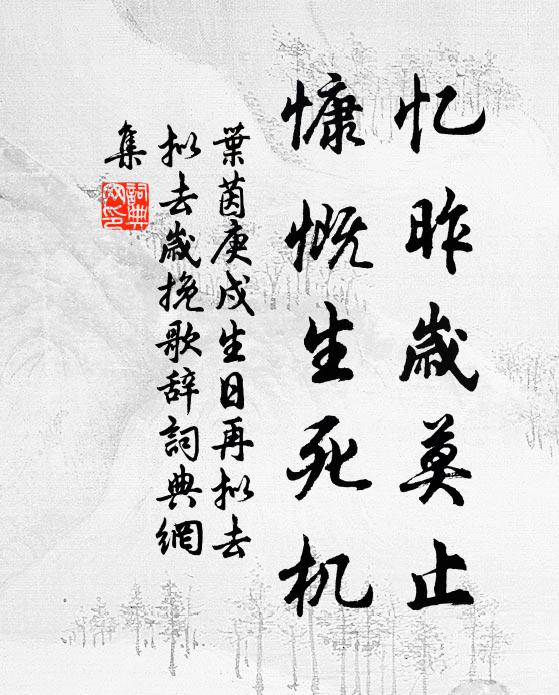 忆昨岁莫止
慷慨生死机
葉茵庚戌生日再拟去
拟去歲挽歌辞詞典網
集
詞典網印